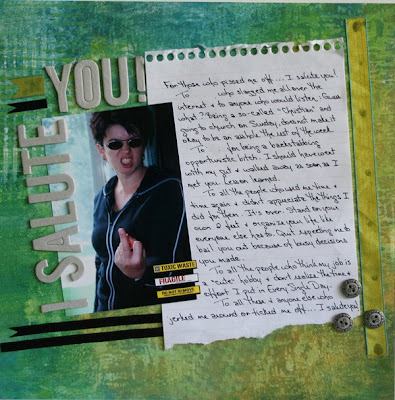 I SALUTE
YOU!
For those who pissed me off.... I salute you!
To who slammed me all over the
internet & to anyone who would listen. Guess
what? Being a so-called "Christian" and
going to church on Sunday, does not make it
okay to be an asshole the rest of the week.
To for being a backstabbing
opportunistic bitch. I should have went
with my gut & walked away as soon as I
met you. Lesson learned.
To all the people who used me time &
time again & didn't appreciate the things I
did for them. It's over. Stand on your
own 2 feet & organize your life like
everyone else has to. Quit expecting me to
bail you out because of lousy decisions
you made.
To all the people who think my job is
a "cute" hobby & don't realize the time &
effort I put in Every Single Day.
To all these & anyone else who
jerked me around or ticked me off.... I salute you!
TOXIC WASTE
FRAGILE
DO NOT REMOVE